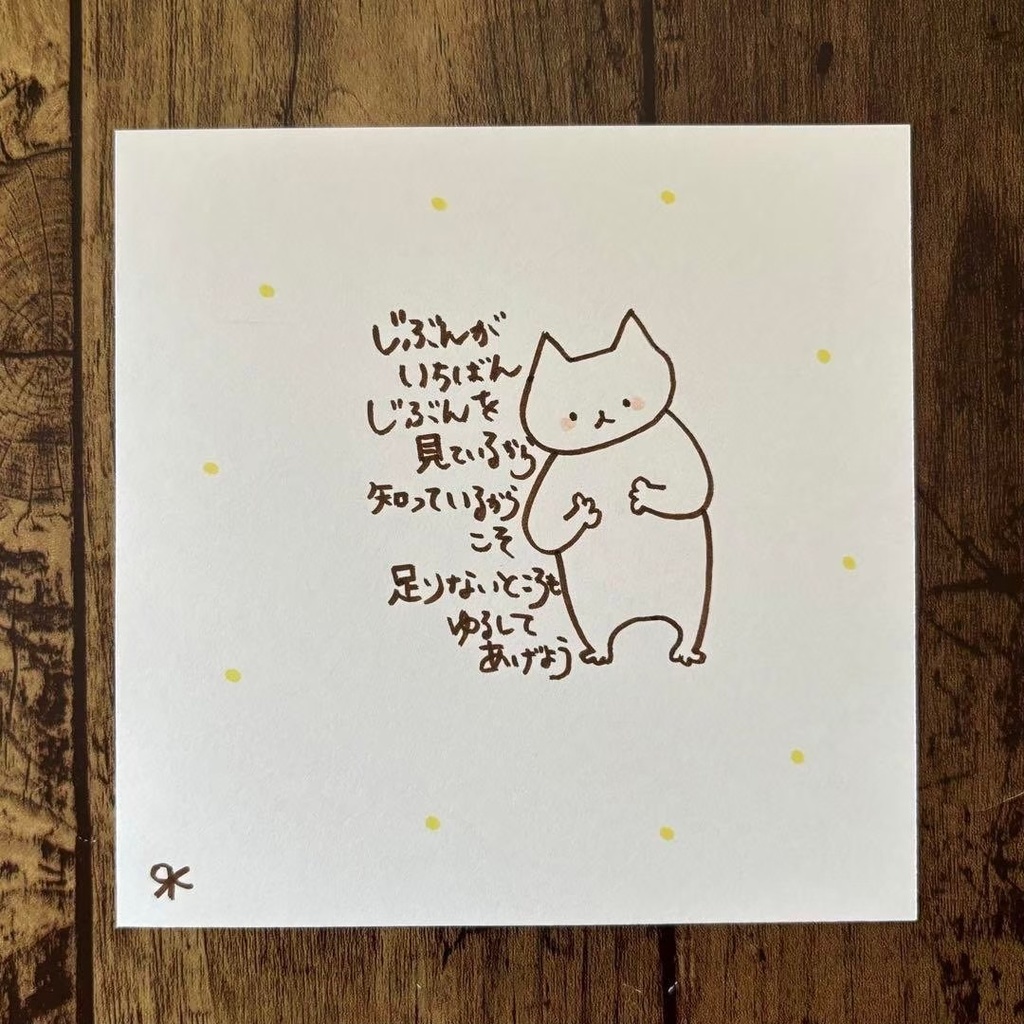 じぶんが
いちばん
じぶんを
見ているから
知っているから
こそ
足りないところも
ゆるして
あげよう